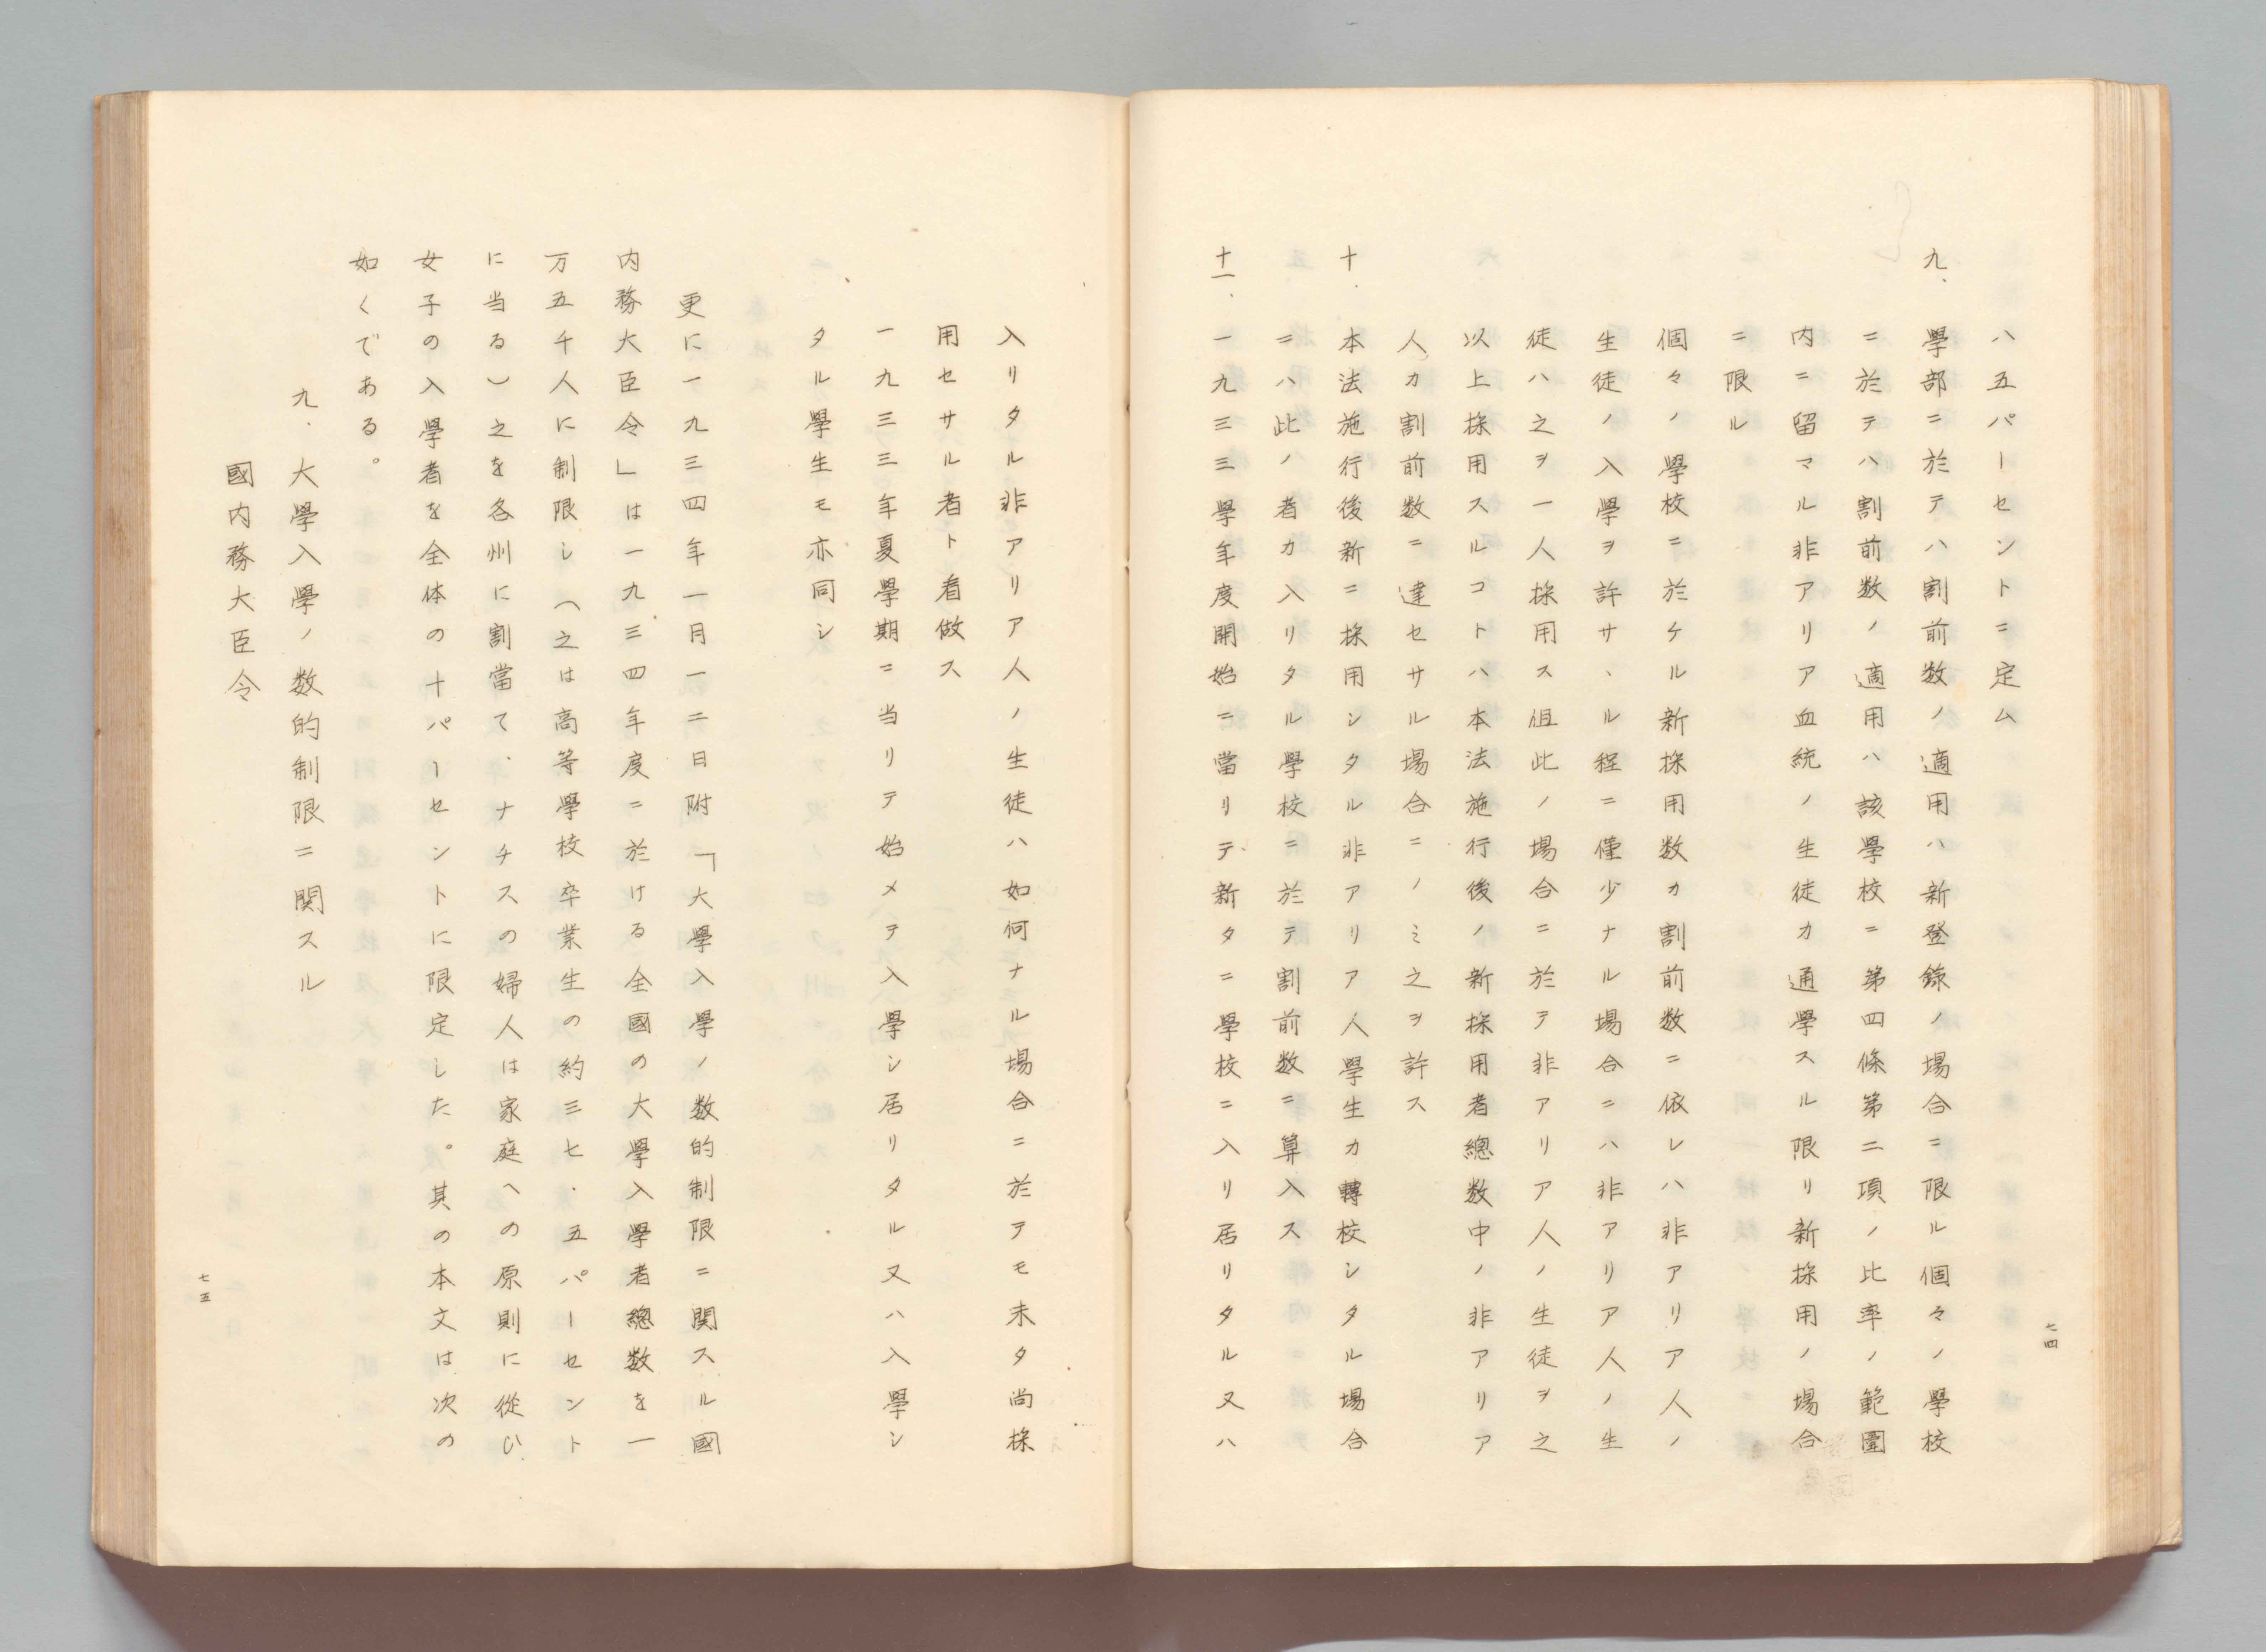 八五パーセントニ定ム
九、學部ニ於テハ割前数ノ適用ハ新登錄ノ場合ニ限ル個々ノ學校
ニ於テハ割前数ノ適用ハ該學校ニ第四條第二項ノ比率ノ範圍
内ニ留マル非アリア血統ノ生徒カ通學スル限リ新採用ノ場合
ニ限ル
個々ノ學校ニ於ケル新採用数カ割前数ニ依レハ非アリア人ノ
生徒ノ入學ヲ許サヽル程ニ僅少ナル場合ニハ非アリア人ノ生
徒ハ之ヲ一人採用ス但此ノ場合ニ於テ非アリア人ノ生徒ヲ之
以上採用スルコトハ本法施行後ノ新採用者總数中ノ非アリア
人カ割前数ニ達セサル場合ニノミ之ヲ許ス
十.本法施行後新ニ採用シタル非アリア人學生カ轉校シタル場合
ニハ此ノ者カ入リタル學校ニ於テ割前数ニ算入ス
十一.一九三三學年度開始ニ當リテ新タニ學校ニ入リ居リタル又ハ
七四
入リタル非アリア人ノ生徒ハ如何ナル場合ニ於テモ未タ尚採
用セサル者ト看做ス
一九三三年夏學期ニ当リテ始メテ入學シ居リタル又ハ入學シ
タル學生モ亦同シ
更に一九三四年一月一二日附「大學入學ノ数的制限ニ関スル國
内務大臣令」は一九三四年度ニ於ける全國の大學入學者總数を一
万五千人に制限し（之は高等學校卒業生の約三七．五パーセント
に当る）之を各州に割當て、ナチスの婦人は家庭への原則に從ひ
女子の入學者を全体の十パーセントに限定した。其の本文は次の
如くである。
九．大學入學ノ数的制限ニ関スル
國内務大臣令
七五